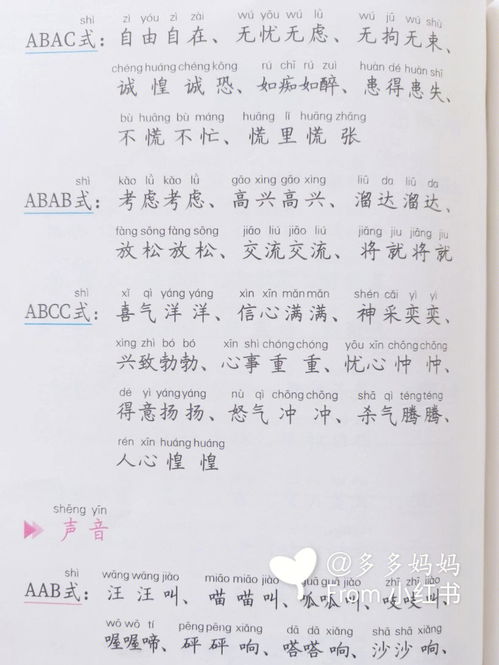 shì zì yóu zì zài wú yōu wú lǜ wú jū wú shù
ABAC式：自由自在、无忧无虑、无拘无束、
chéng huáng chéng kǒng rú chī rú zuì huàn dé huàn shī
诚惶诚恐、如痴如醉、患得患失、
bù huāng bù máng huāng lǐ huāng zhāng
不慌不忙、慌里慌张
shì kǎo lǜ kǎo lǜ gāo xìng gāo xìng liū da liū da
ABAB式：考虑考虑、高兴高兴、溜达溜达、
fàng sōng fàng sōng jiāo liú jiāo liú jiāng jiu jiāng jiu
放松放松、交流交流、将就将就
shì xǐ qì yáng yáng xìn xīn mǎn mǎn shén cǎi yì yì
ABCC式：喜气洋洋、信心满满、神采奕奕、
xìng zhì bó bó xīn shì chóng chóng yōu xīn chōng chōng
兴致勃勃、心事重重、忧心忡忡、
dé yì yáng yáng nù qì chōng chōng shā qì téng téng
得意扬扬、怒气冲冲、杀气腾腾、
rén xīn huáng huáng
人心惶惶
shēng yīn
声音
shì wāng wāng jiào miāo miāo jiào guā guā jiào zhī zhī jiào
AAB式：汪汪叫、喵喵叫、呱呱叫、吱吱叫、
wō wō tí pēng pēng xiǎng dā dā xiǎng shā shā xiǎng
喔喔啼、砰砰响、嗒嗒响、沙沙响、
@多多妈妈
From 小红书